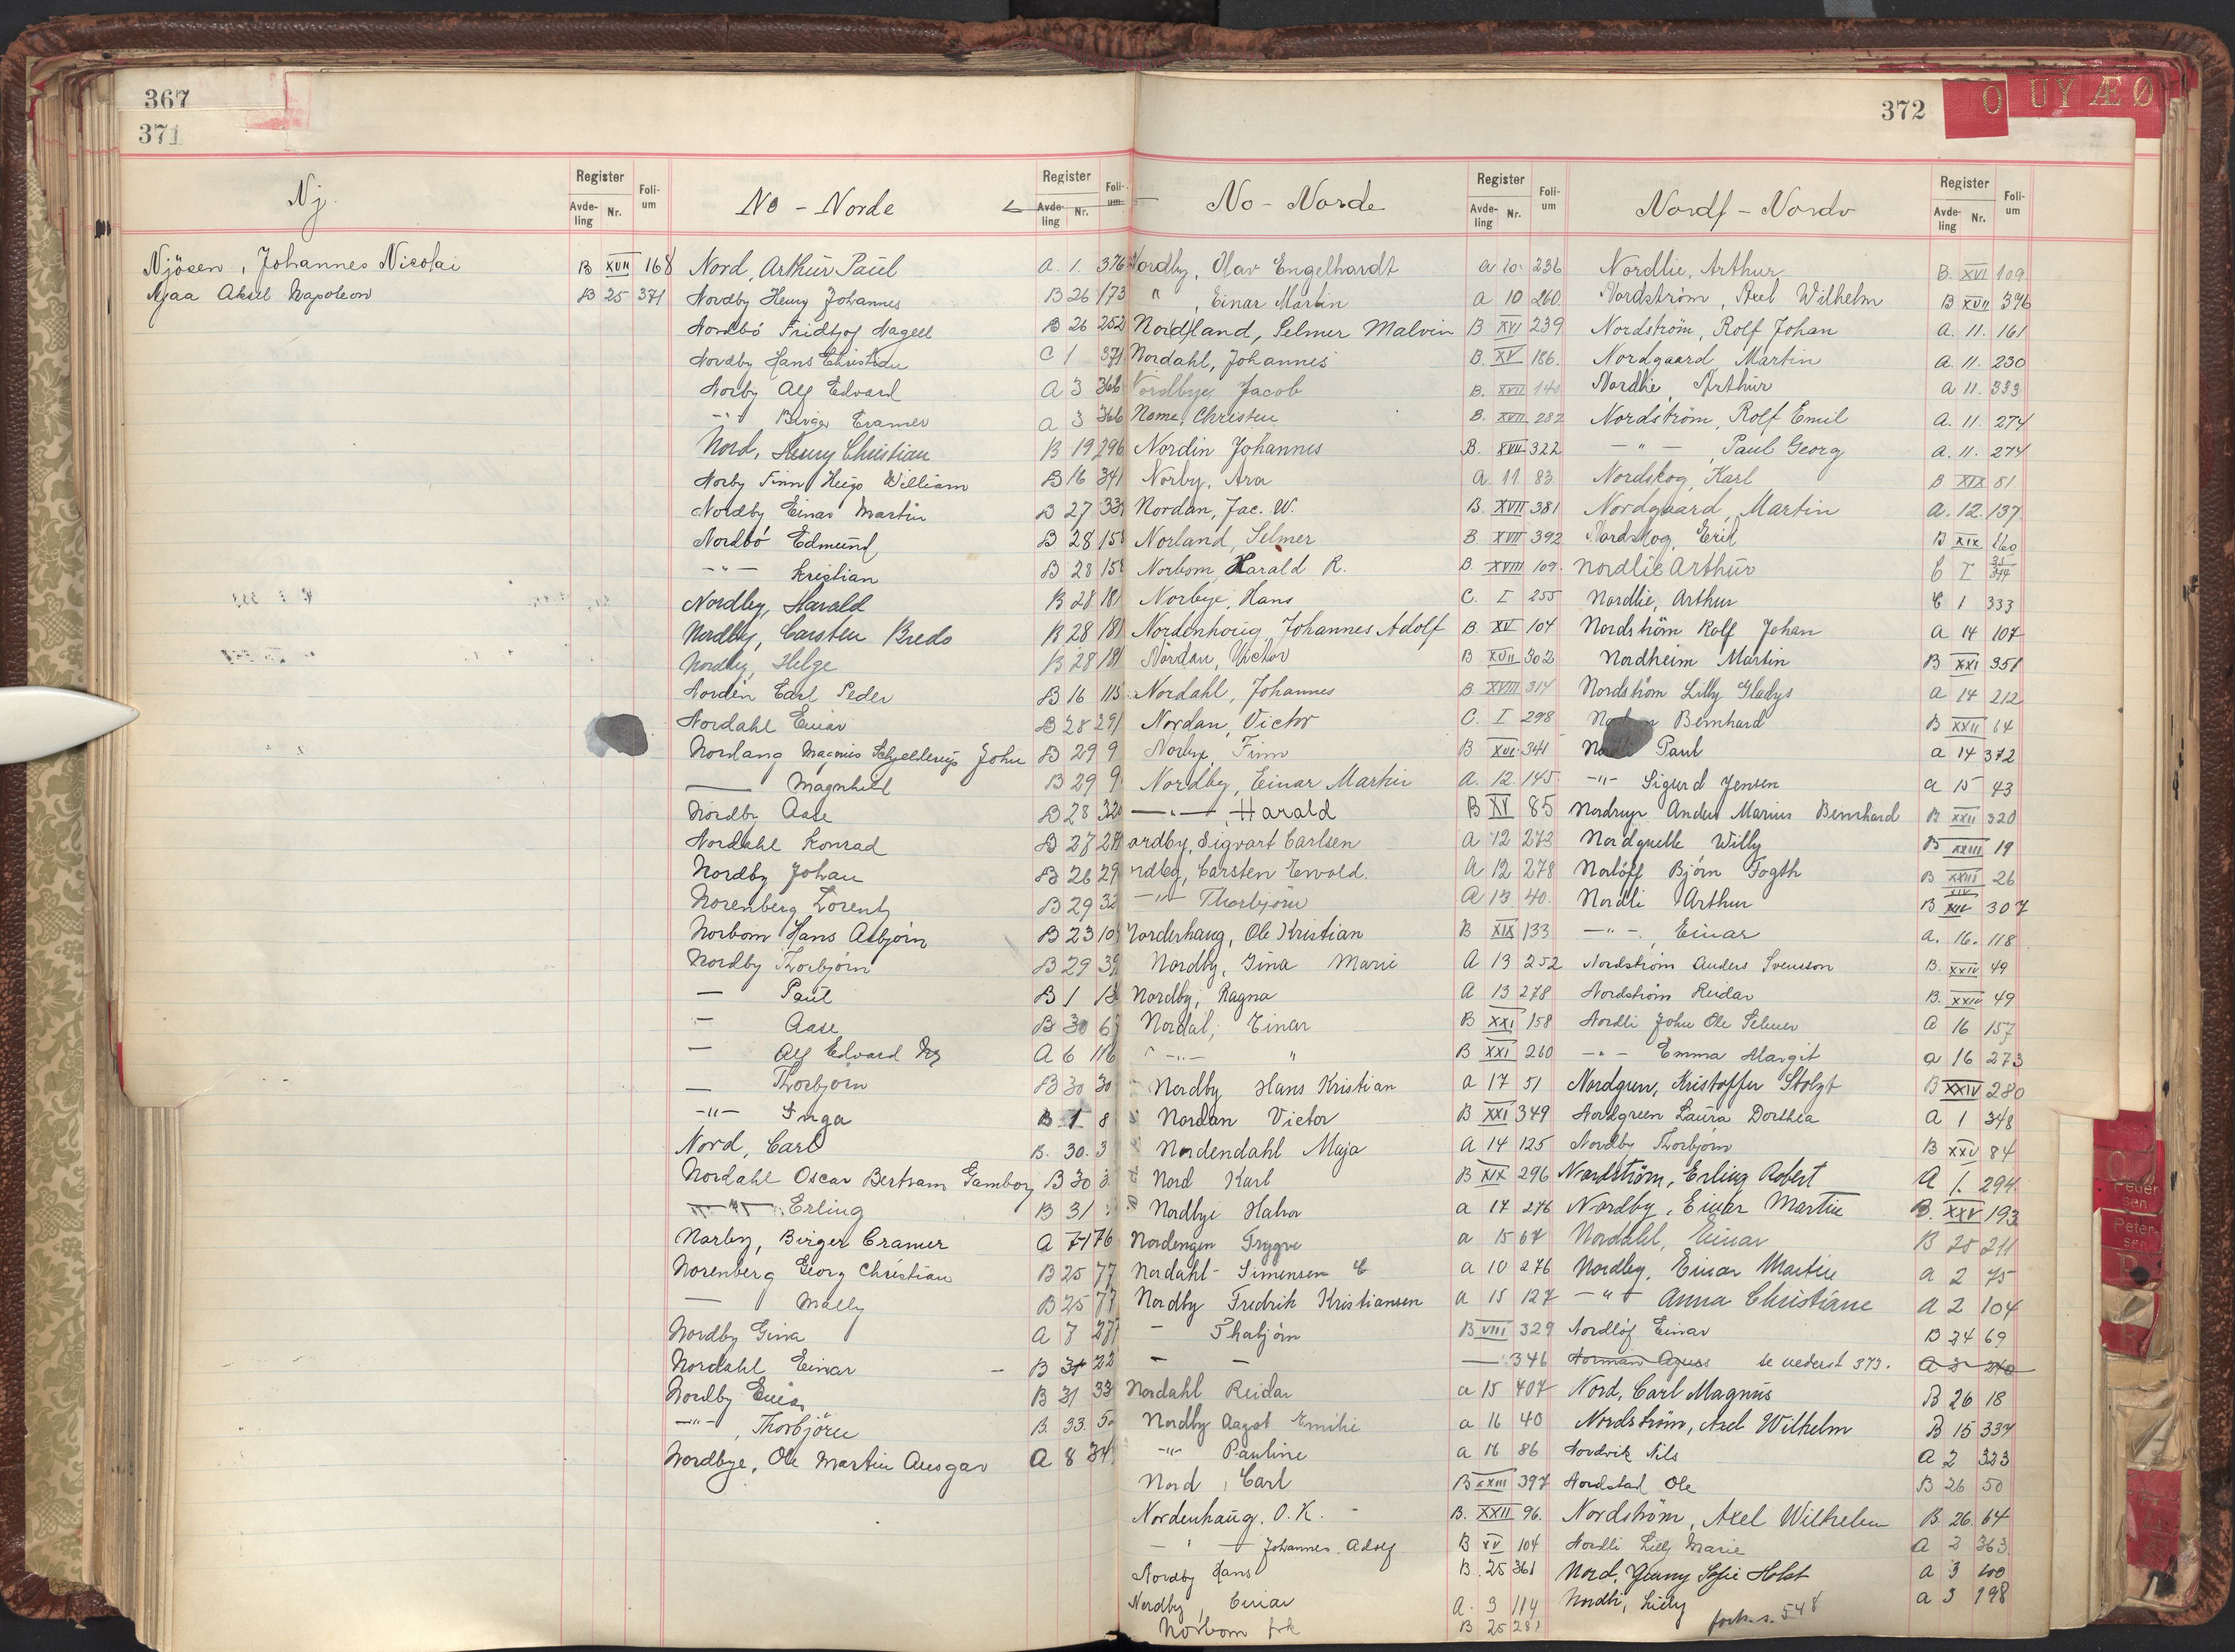 367
371
Nj.
Register
Avde-ling Nr.
Foli-um
Njösen, Johannes Nicolai B XVII 168
Njaa Aksel Napoleon B 25 371
No - Norde
Register
Avde-ling Nr.
Foli-um
Nord, Arthur Paul A. 1. 376
Nordby Henry Johannes B 26 173
Nordbö Fridtjof Nagell B 26 252
Nordby Hans Christian C 1 371
Norby Alf Edvard A 3 366
-"- Birger Cramer a 3 366
Nord, Henry Christian B 19 296
Norby Finn Hugo William B 16 341
Nordby Einar Martin B 27 33
Nordbö Edmund B 28 158
-"- Kristian B 28 158
Nordby, Harald B 28 181
Nordby, Carsten Bredo B 28 181
Nordby, Helge B 28 181
Nordén Carl Peder B 16 115
Nordahl Einar B 28 291
Nordang Magnus Schjelderup John B 29 9
— Magnhild B 29 9
Nordby Aase B 28 320
Nordahl Konrad B 27 28
Nordby Johan B 26 29
Norenberg Lorentz B 29 32
Norbom Hans Asbjörn B 23 10
Nordby Thorbjörn B 29 39
— Paul B 1 13
— Aase B 30 67
— Alf Edvard A 6 116
— Thorbjörn B 30 30
-"- Inga B 1 8
Nord, Carl B. 30. 3
Nordahl Oscar Bertram Gamborg B 30 3
-"- Erling B 31
Norby, Birger Cramer A 7 176
Norenberg Georg Christian B 25 77
— Mally B 25 77
Nordby Gina A 7 277
Nordahl Einar - B 31 22
Nordby Einar B 31 33
-"-, Thorbjörn B. 33. 5
Nordbye, Ole Martin Ansgar A 8 34
372
O UY Æ Ø
No - Norde
Register
Avde-ling Nr.
Foli-um
Nordby, Olav Engelhardt a 10. 236
", Einar Martin a 10 260
Nor(d)land, Selmer Malvin B XVI 239
Nordahl, Johannes B. XV 186.
Nordbye Jacob B. XVII 140
Nome, Christen B. XVII 282
Nordin Johannes B. XVII 322
Norby, Ara a. 11. 83
Nordan, Jac. W. B. XVII 381
Norland, Selmer B XVII 392
Norbom, Harald R. B. XVIII 109.
Norbye, Hans C. I 255
Nordenhoug, Johannes Adolf B. XV 104
Nordan, Victor B XVII 302
Nordahl, Johannes B XVIII 314
Nordan, Victor C. I 298
Norby, Finn B XVI 341
Nordby, Einar Martin A. 12. 145.
-"-, Harald B XV 85
ordby, Sigvart Carlsen a 12 273
rdby, Carsten Ewold. A 12 278
-"- Thorbjörn A 13 40.
Norderhaug, Ole Kristian B XIX 133
Nordby, Gina Marie A 13 252
Nordby, Ragna A 13 278
Nordal, Einar B XXI 158
-"- " B XXI 260
Nordby Hans Kristian a 17 51
Nordan Victor B XXI 349
Nordendahl Maja a 14 125
Nord Karl B XIX 296
Nordbye Halvor a 14 276
Nordengen Trygve a 15 67
Nordahl-Simensen E a 10 276
Nordby Fredrik Kristiansen a 15 127
- Thorbjörn B VIII 329
- - — 346
Nordahl Reidar a 15 407
Nordby Aagot Emilie a 16 40
-"- Pauline a 16 86
Nord, Carl B XXIII 397
Nordenhaug. O. K. - B. XXII 96.
- " - Johannes Adolf B XV 104
Nordby Hans B. 25 361
Nordby, Einar A. 3 114
Norbom frk B 25 281
Nordf - Nordv
Register
Avde-ling Nr.
Foli-um
Nordlie, Arthur B. XVI 109
Nordström, Axel Wilhelm B XVII 396
Nordström, Rolf Johan A. 11. 161
Nordgaard, Martin A. 11. 230
Nordlie, Arthur a 11. 333
Nordström, Rolf Emil A. 11. 274
- " -, Paul Georg A. 11. 274
Nordskog, Karl B XIX 81
Nordgaard, Martin A. 12. 137
Nordskog, Erik B XIX 260
Nordlie Arthur C I 344
Nordlie, Arthur C 1 333
Nordström Rolf Johan a 14 107
Nordheim Martin B XXI 351
Nordström Lilly Gladys a 14 212
Bernhard B XXII 64
Paul a 14 372
-"- Sigurd Jensen a 15 43
Nordrup Anders Marius Bernhard B XXII 320
Nordquelle Willy B XXIII 19
Norlöff Björn Fogth B XXIII 26
Nordli Arthur B XIV 307
-"-, Einar a. 16. 118
Nordström Anders Svensson B. XXIV 49
Nordström Reidar B. XXIV 49
Nordli John Ole Selmer a 16 157
-"- Emma Margit a 16 273
Nordgren, Kristoffer Stolzt B XXIV 280
Nordgreen Laura Dorthea A 1 348
Nordby Thorbjörn B XXV 84
Nordström, Erling Robert A 1. 294
Nordby, Einar Martin B. XXV 193
Nordahl, Einar B 25 211
Nordby, Einar Martin a 2 75
-"- Anna Christiane A 2 104
Nordlöf Einar B 24 69
Norman Agnes se nederst 373. A 2 240
Nord, Carl Magnus B 26 18
Nordström, Axel Wilhelm B 15 334
Nordvik Nils A 2 323
Nordstad Ole B 26 50
Nordström, Axel Wilhelm B 26. 64
Nordli Lilly Marie A 2 363
Nord, Jenny Sofie Holst a 3 100
Nordli, Lilly a 3 198
forts. s. 548
Peder-sen
Peter-sen